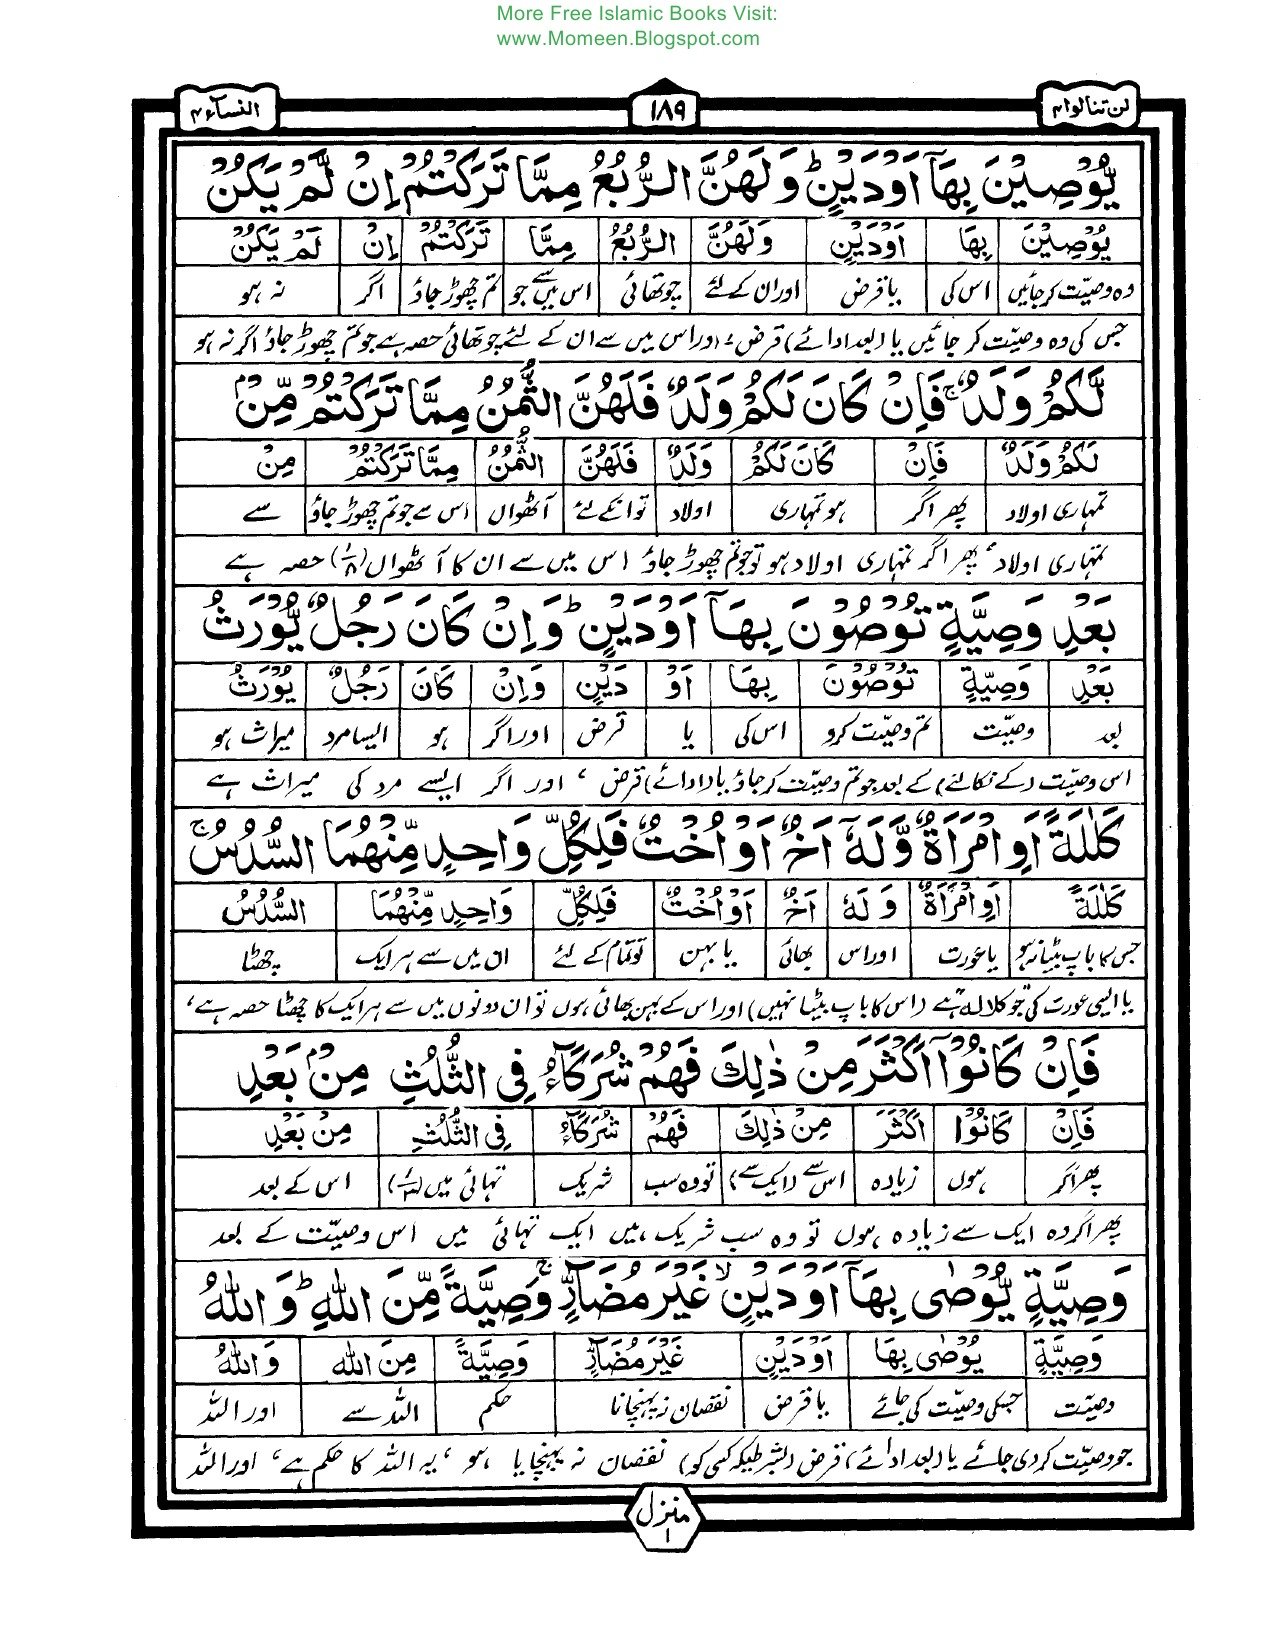 More Free Islamic Books Visit:
www.Momeen.Blogspot.com
لن تنالوا ۴ ۱۸۹ النسآء ۴
يُّوْصِيْنَ بِهَآ اَوْ دَيْنٍ ؕ وَلَهُنَّ الرُّبُعُ مِمَّا تَرَكْتُمْ اِنْ لَّمْ يَكُنْ
يُوْصِيْنَ بِهَا اَوْ دَيْنٍ وَلَهُنَّ الرُّبُعُ مِمَّا تَرَكْتُمْ اِنْ لَمْ يَكُنْ
وہ وصیّت کرجائیں اس کی یا قرض اور ان کے لئے چوتھائی اس میں سے جو تم چھوڑ جاؤ اگر نہ ہو
جس کی وہ وصیّت کر جائیں یا (بعد ادائے) قرض، اور اس میں سے ان کے لئے چوتھائی حصہ ہے جو تم چھوڑ جاؤ اگر نہ ہو
لَّكُمْ وَلَدٌ ۚ فَاِنْ كَانَ لَكُمْ وَلَدٌ فَلَهُنَّ الثُّمُنُ مِمَّا تَرَكْتُمْ مِّنْۢ
لَكُمْ وَلَدٌ فَاِنْ كَانَ لَكُمْ وَلَدٌ فَلَهُنَّ الثُّمُنُ مِمَّا تَرَكْتُمْ مِنْ
تمہاری اولاد پھر اگر ہو تمہاری اولاد تو انکے لئے آٹھواں اس سے جو تم چھوڑ جاؤ سے
تمہاری اولاد، پھر اگر تمہاری اولاد ہو تو جو تم چھوڑ جاؤ اس میں سے ان کا آٹھواں (۱/۸) حصہ ہے
بَعْدِ وَصِيَّةٍ تُوْصُوْنَ بِهَآ اَوْ دَيْنٍ ؕ وَاِنْ كَانَ رَجُلٌ يُّوْرَثُ
بَعْدِ وَصِيَّةٍ تُوْصُوْنَ بِهَا اَوْ دَيْنٍ وَاِنْ كَانَ رَجُلٌ يُوْرَثُ
بعد وصیّت تم وصیّت کرو اس کی یا قرض اور اگر ہو ایسا مرد میراث ہو
اس وصیّت (کے نکالنے) کے بعد جو تم وصیّت کر جاؤ یا (ادائے) قرض، اور اگر ایسے مرد کی میراث ہے
كَلٰلَةً اَوِ امْرَاَةٌ وَّلَهٗٓ اَخٌ اَوْ اُخْتٌ فَلِكُلِّ وَاحِدٍ مِّنْهُمَا السُّدُسُ ۚ
كَلٰلَةً اَوِ امْرَاَةٌ وَ لَهٗ اَخٌ اَوْ اُخْتٌ فَلِكُلِّ وَاحِدٍ مِّنْهُمَا السُّدُسُ
جس کا باپ بیٹا نہ ہو یا عورت اور اس بھائی یا بہن تو تمام کے لئے ان میں سے ہر ایک چھٹا
یا ایسی عورت کی جو کلالہ ہے (اس کا باپ بیٹا نہیں) اور اس کے بہن بھائی ہوں تو ان دونوں میں سے ہر ایک کا چھٹا حصہ ہے،
فَاِنْ كَانُوْٓا اَكْثَرَ مِنْ ذٰلِكَ فَهُمْ شُرَكَآءُ فِى الثُّلُثِ مِنْۢ بَعْدِ
فَاِنْ كَانُوْا اَكْثَرَ مِنْ ذٰلِكَ فَهُمْ شُرَكَآءُ فِى الثُّلُثِ مِنْ بَعْدِ
پھر اگر ہوں زیادہ اس سے (ایک سے) تو وہ سب شریک تہائی میں (۱/۳) اس کے بعد
پھر اگر وہ ایک سے زیادہ ہوں تو وہ سب شریک ہیں ایک تہائی میں اس وصیّت کے بعد
وَصِيَّةٍ يُّوْصٰى بِهَآ اَوْ دَيْنٍ ۙ غَيْرَ مُضَآرٍّ ۚ وَصِيَّةً مِّنَ اللّٰهِ ؕ وَاللّٰهُ
وَصِيَّةٍ يُوْصٰى بِهَا اَوْ دَيْنٍ غَيْرَ مُضَآرٍّ وَصِيَّةً مِنَ اللّٰهِ وَاللّٰهُ
وصیّت جسکی وصیّت کی جائے یا قرض نقصان نہ پہنچانا حکم اللہ سے اور اللہ
جو وصیّت کر دی جائے یا (بعد ادائے) قرض (بشرطیکہ کسی کو) نقصان نہ پہنچایا ہو، یہ اللہ کا حکم ہے، اور اللہ
منزل ۱